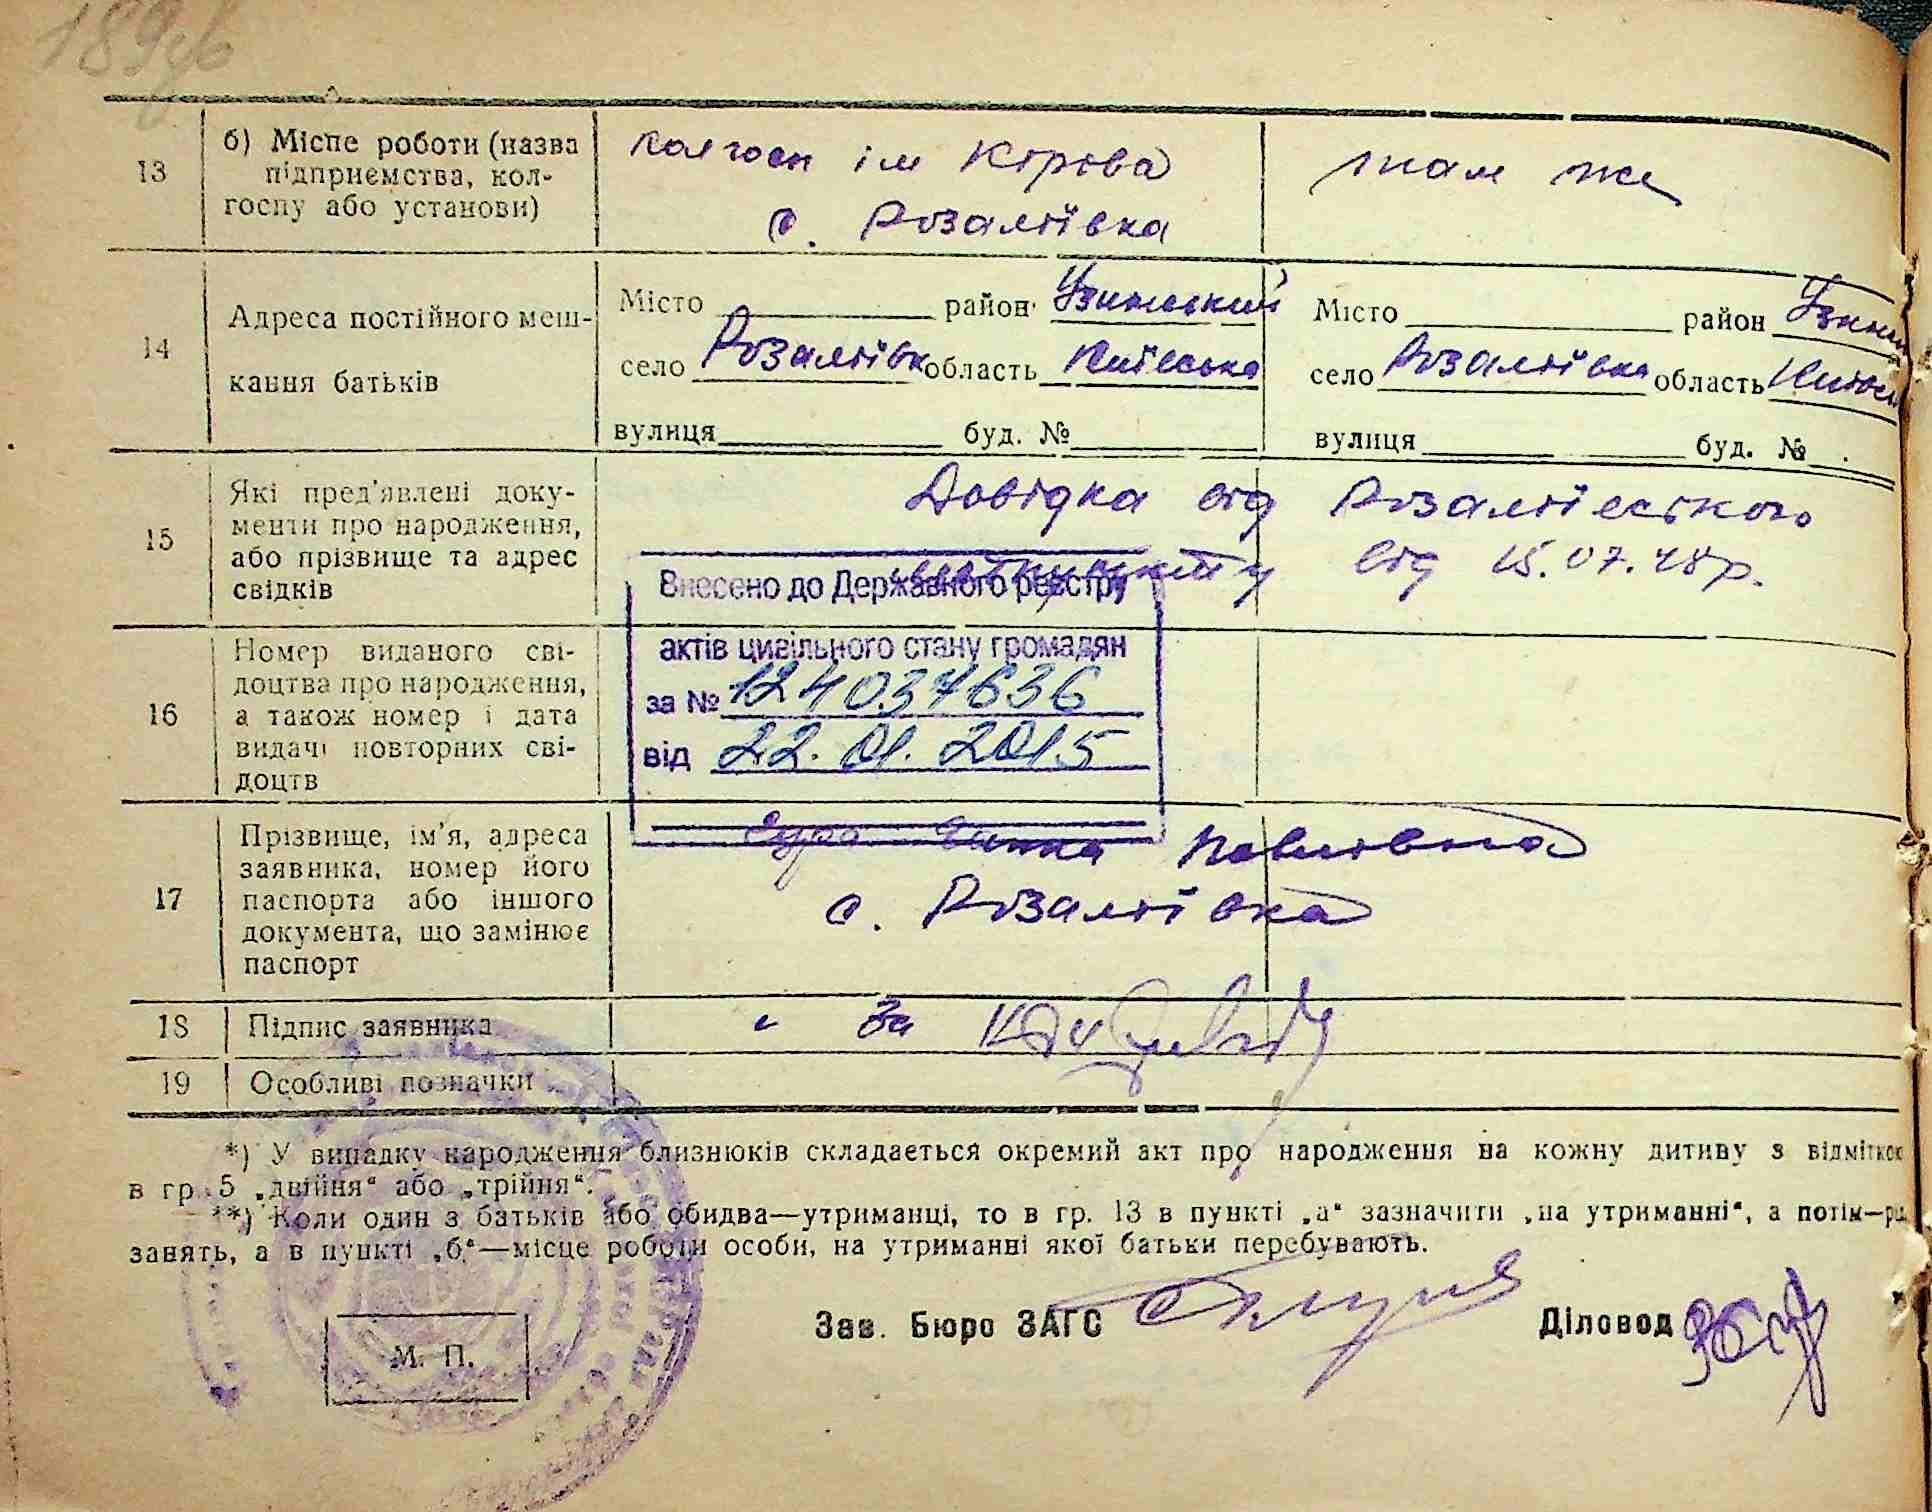 189зв
13
б) Місце роботи (назва
підприємства, кол-
госпу або установи)
колгосп ім Кірова
с. Розаліївка
там же
14
Адреса постійного меш-
кання батьків
Місто район Узинський
село Розаліївк область Київська
вулиця буд. №
Місто район Узин
село Розаліївка область Київсь
вулиця буд. №
15
Які пред'явлені доку-
менти про народження,
або прізвище та адрес
свідків
Довідка від Розаліївського
від 15.07.48р.
Внесено до Державного реєстру
актів цивільного стану громадян
за № 124037636
від 22.01.2015
16
Номер виданого сві-
доцтва про народження,
а також номер і дата
видачі повторних сві-
доцтв
17
Прізвище, ім'я, адреса
заявника, номер його
паспорта або іншого
документа, що замінює
паспорт
Ганна Павлівна
с. Розаліївка
18
Підпис заявника
За
19
Особливі позначки
*) У випадку народження близнюків складається окремий акт про народження на кожну дитину з відміткою
в гр. 5 „двійня“ або „трійня“.
**) Коли один з батьків або обидва—утриманці, то в гр. 13 в пункті „а“ зазначити „на утриманні“, а потім—рід
занять, а в пункті „б“—місце роботи особи, на утриманні якої батьки перебувають.
М. П.
Зав. Бюро ЗАГС
Діловод